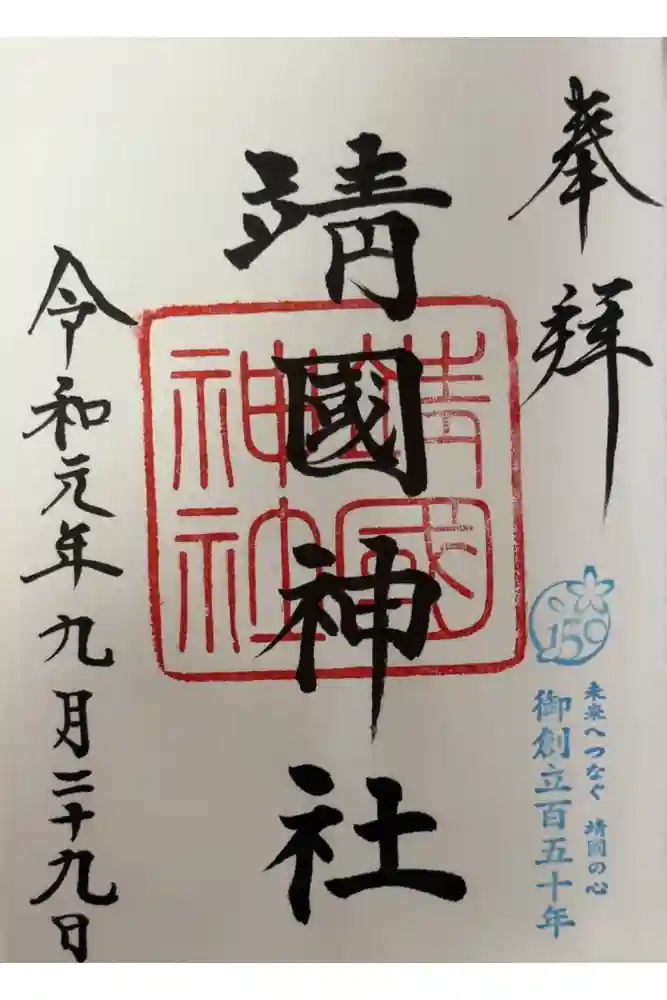 奉拝
150
未来へつなぐ 靖國の心
御創立百五十年
靖國神社
靖國神社
令和元年九月二十九日